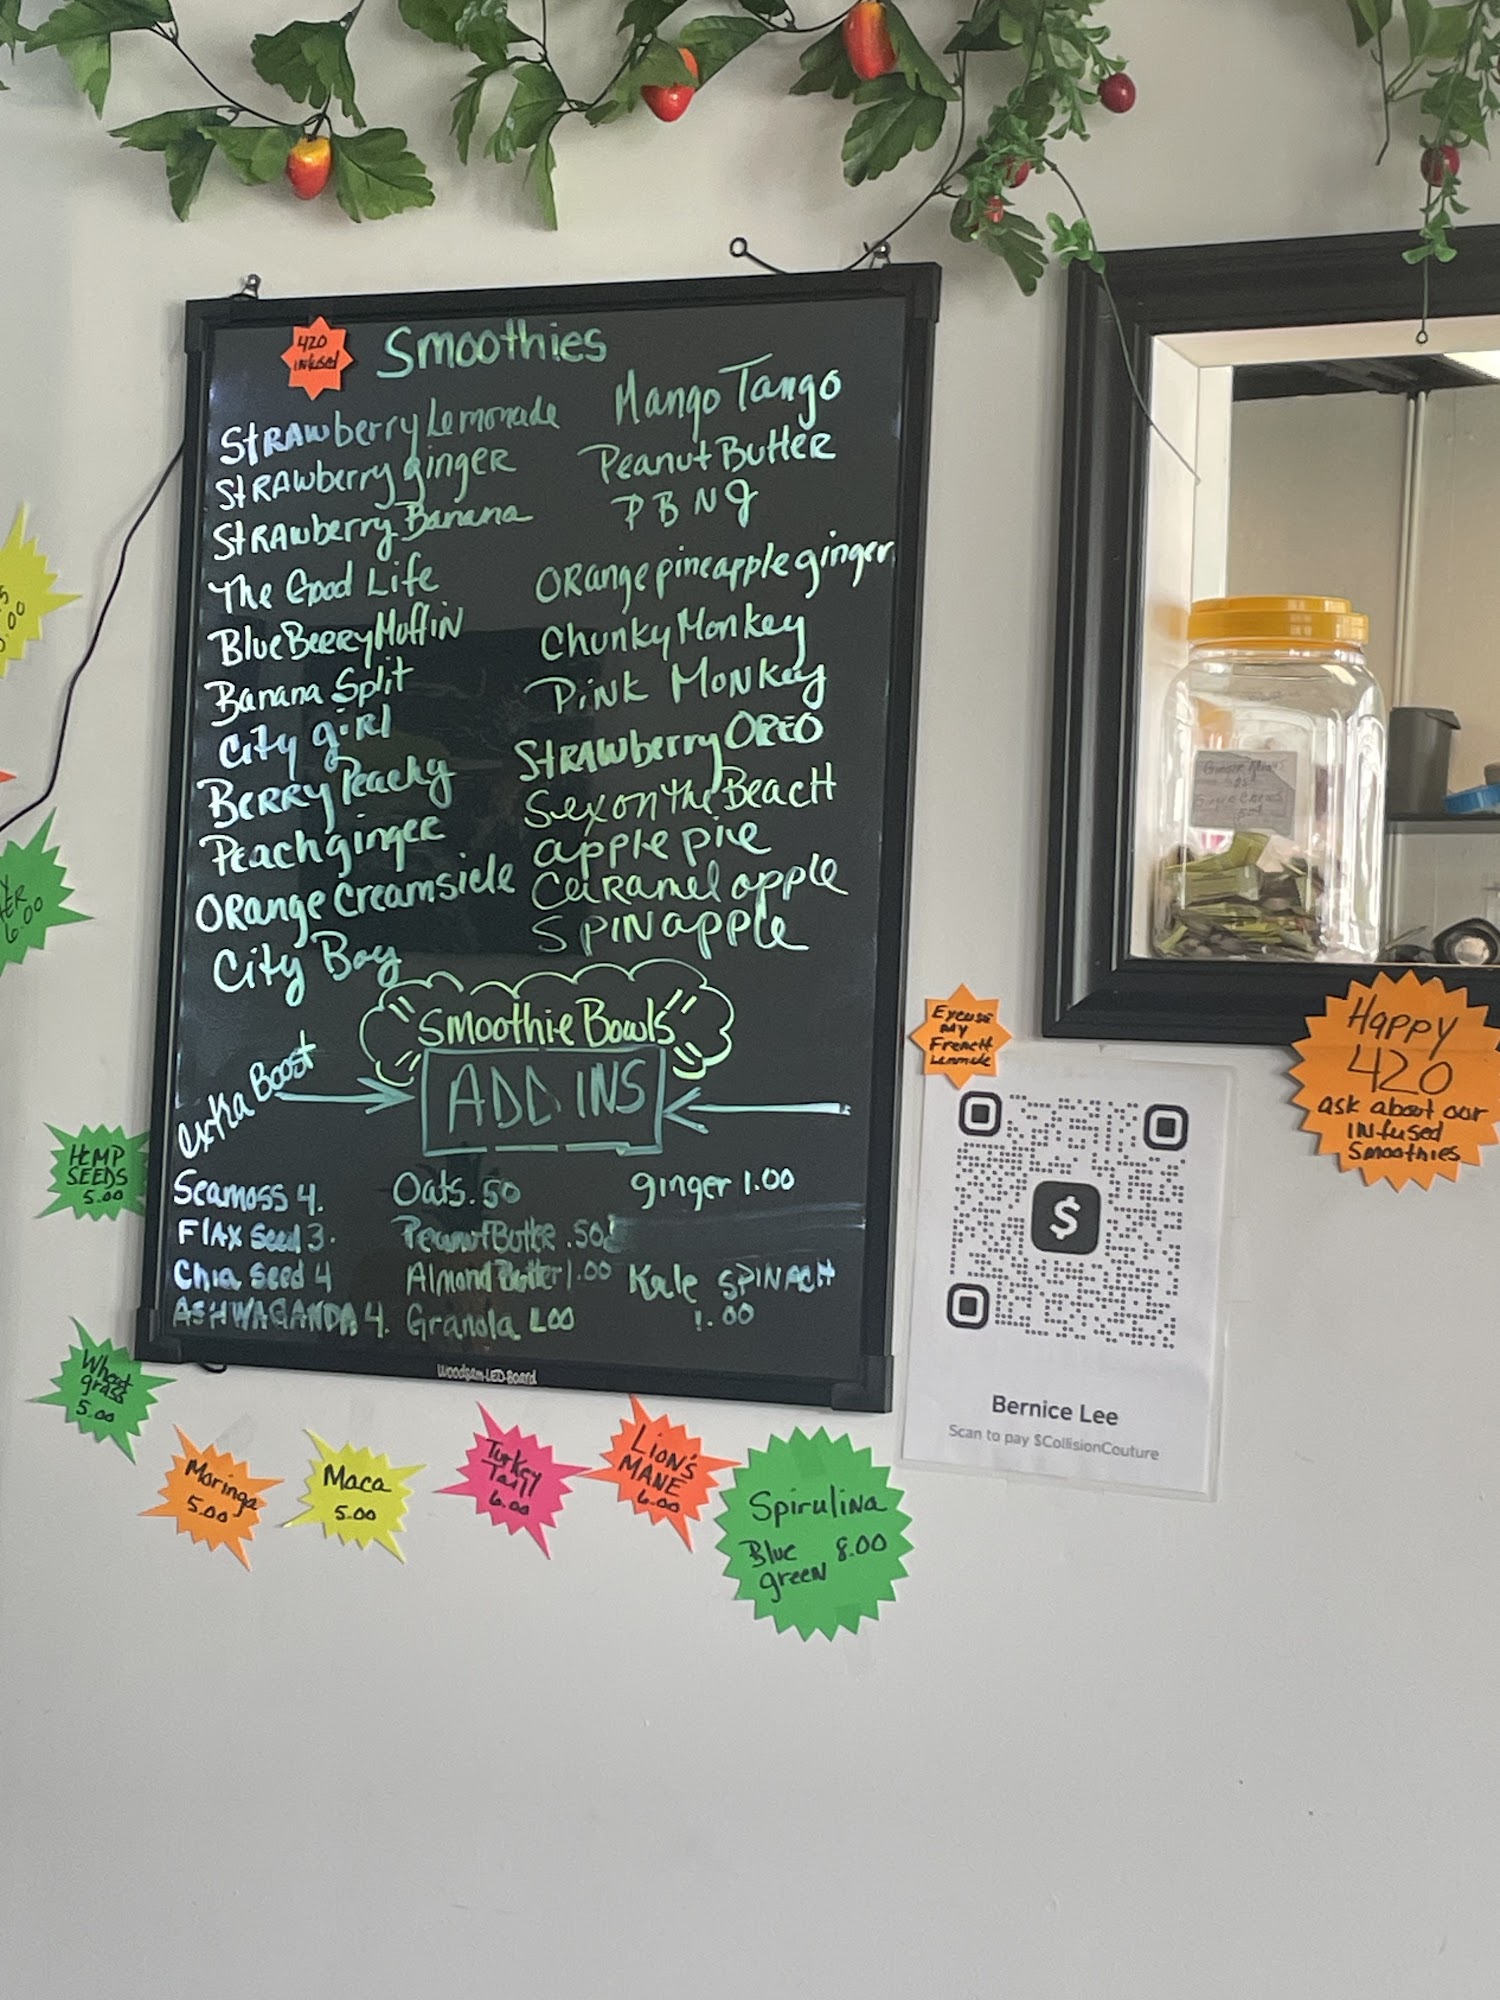 420
infused
Smoothies
Strawberry Lemonade
Strawberry ginger
Strawberry Banana
The Good Life
BlueBerry Muffin
Banana Split
City girl
Berry Peachy
Peach ginger
Orange Creamsicle
City Boy
Mango Tango
Peanut Butter
P B N J
Orange pineapple ginger
Chunky Monkey
Pink Monkey
Strawberry OREO
Sex on the Beach
apple pie
Caramel apple
SPINapple
Smoothie Bowls
ADD INS
extra Boost
Seamoss 4.
Flax Seed 3.
Chia Seed 4
ASHWAGANDA 4.
Oats .50
Peanut Butter .50
Almond Butter 1.00
Granola 1.00
ginger 1.00
Kale SPINACH
1.00
Woodsam-LED-Board
5.00
6.00
HEMP
SEEDS
5.00
Wheat
grass
5.00
Moringa
5.00
Maca
5.00
Turkey
Tail
6.00
LION'S
MANE
6.00
Spirulina
Blue 8.00
green
Excuse
My
French
$
Bernice Lee
Scan to pay $CollisionCouture
Happy
420
ask about our
INfused
Smoothies